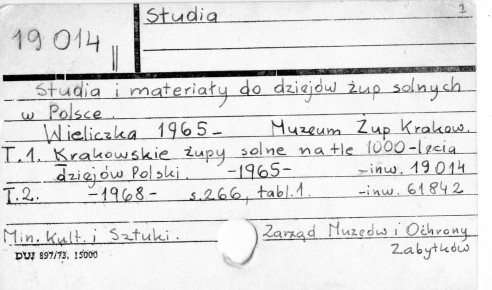 Studia 1
19 014 ||
Studia i materiały do dziejów żup solnych
w Polsce.
Wieliczka 1965- Muzeum Żup Krakow.
T.1. Krakowskie żupy solne na tle 1000-lecia
dziejów Polski. -1965- -inw. 19014
T.2. -1968- s.266, tabl.1. -inw. 61842
Min. Kult. i Sztuki. Zarząd Muzeów i Ochrony
Zabytków
DUJ 897/73. 15000